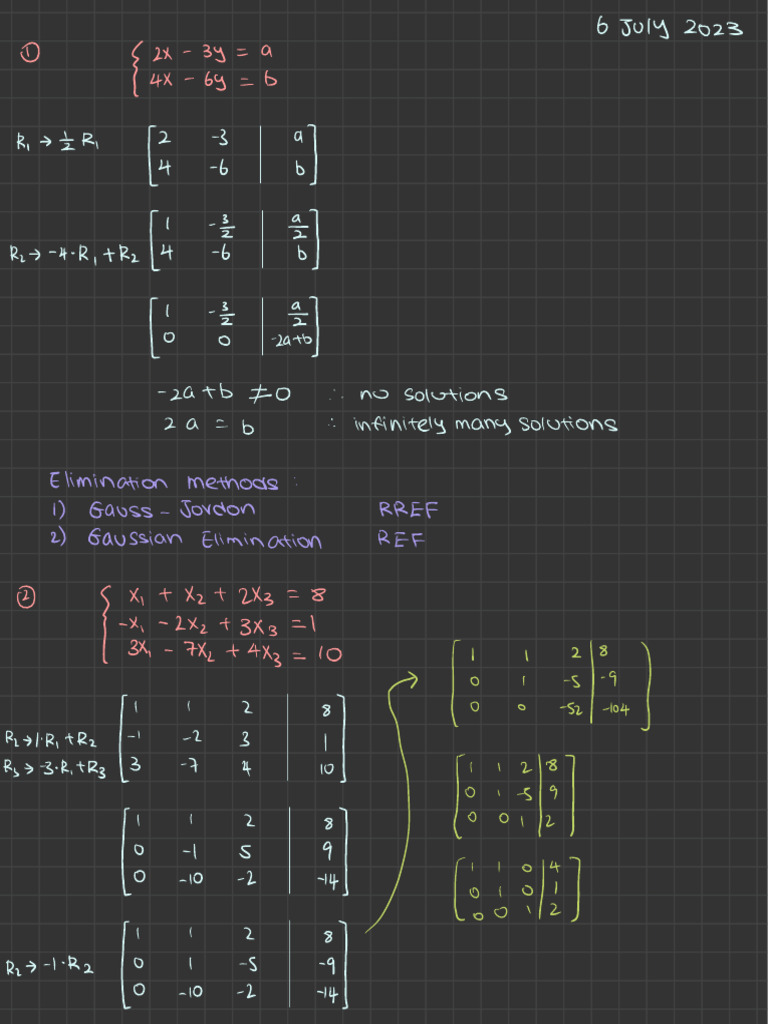 6 July 2023
① { 2x - 3y = a
4x - 6y = b
R₁ → ½ R₁ [ 2 -3 | a
4 -6 | b ]
[ 1 -3/2 | a/2
R₂ → -4·R₁ + R₂ 4 -6 | b ]
[ 1 -3/2 | a/2
0 0 | -2a+b ]
-2a+b ≠ 0 ∴ no solutions
2a = b ∴ infinitely many solutions
Elimination methods :
1) Gauss - Jordon RREF
2) Gaussian Elimination REF
② { x₁ + x₂ + 2x₃ = 8
-x₁ - 2x₂ + 3x₃ = 1
3x₁ - 7x₂ + 4x₃ = 10
[ 1 1 2 | 8
R₂ → 1·R₁ + R₂ -1 -2 3 | 1
R₃ → -3·R₁ + R₃ 3 -7 4 | 10 ]
[ 1 1 2 | 8
0 -1 5 | 9
0 -10 -2 | -14 ]
[ 1 1 2 | 8
R₂ → -1·R₂ 0 1 -5 | -9
0 -10 -2 | -14 ]
[ 1 1 2 | 8
0 1 -5 | -9
0 0 -52 | -104 ]
[ 1 1 2 | 8
0 1 -5 | 9
0 0 1 | 2 ]
[ 1 1 0 | 4
0 1 0 | 1
0 0 1 | 2 ]